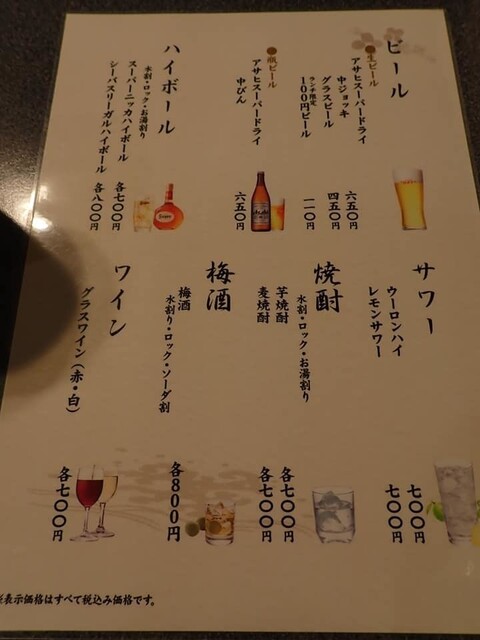 ビール
生ビール
アサヒスーパードライ
中ジョッキ 六五〇円
グラスビール 四五〇円
ランチ限定
100円ビール 一一〇円
瓶ビール
アサヒスーパードライ
中びん 六五〇円
ハイボール
水割・ロック・お湯割り
スーパーニッカハイボール 各七〇〇円
シーバスリーガルハイボール 各八〇〇円
サワー
ウーロンハイ 七〇〇円
レモンサワー 七〇〇円
焼酎
水割・ロック・お湯割り
芋焼酎 各七〇〇円
麦焼酎 各七〇〇円
梅酒
梅酒
水割り・ロック・ソーダ割 各800円
ワイン
グラスワイン(赤・白) 各七〇〇円
表示価格はすべて税込み価格です。